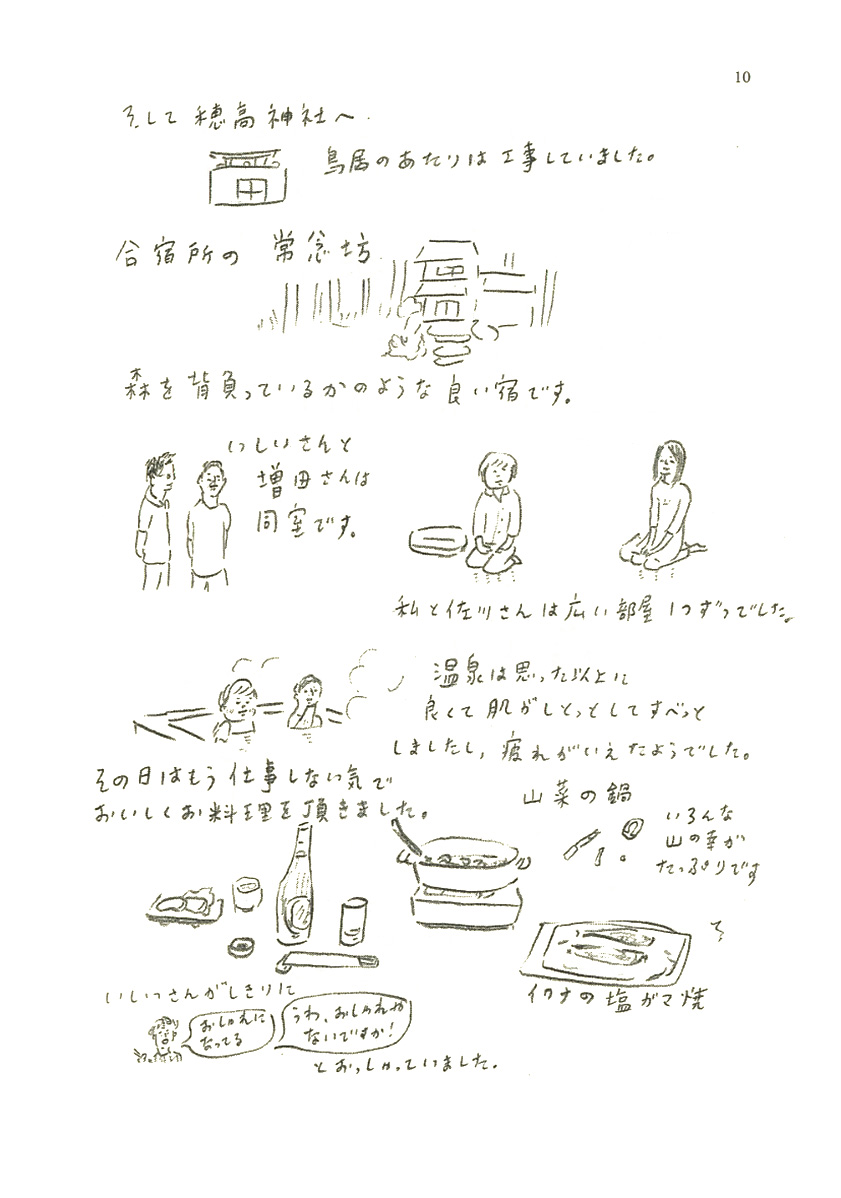 10
そして穂高神社へ.
鳥居のあたりは工事していました。
合宿所の 常念坊.
森を背負っているかのような良い宿です。
いしいさんと
増田さんは
同室です。
私と佐川さんは広い部屋1つずつでした。
温泉は思った以上に
良くて肌がしとっとしてすべっと
しましたし,疲れがいえたようでした。
その日はもう仕事しない気で
おいしくお料理を頂きました。
山菜の鍋
いろんな
山の幸が
たっぷりです
イワナの塩ガマ焼
いしいさんがしきりに
おしゃれに
なってる
うわ、おしゃれや
ないですか!
とおっしゃっていました.